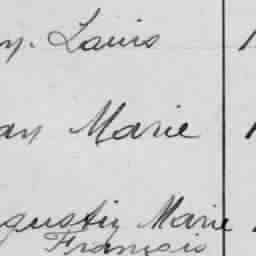 n. Louis
an Marie
gustin Marie
François